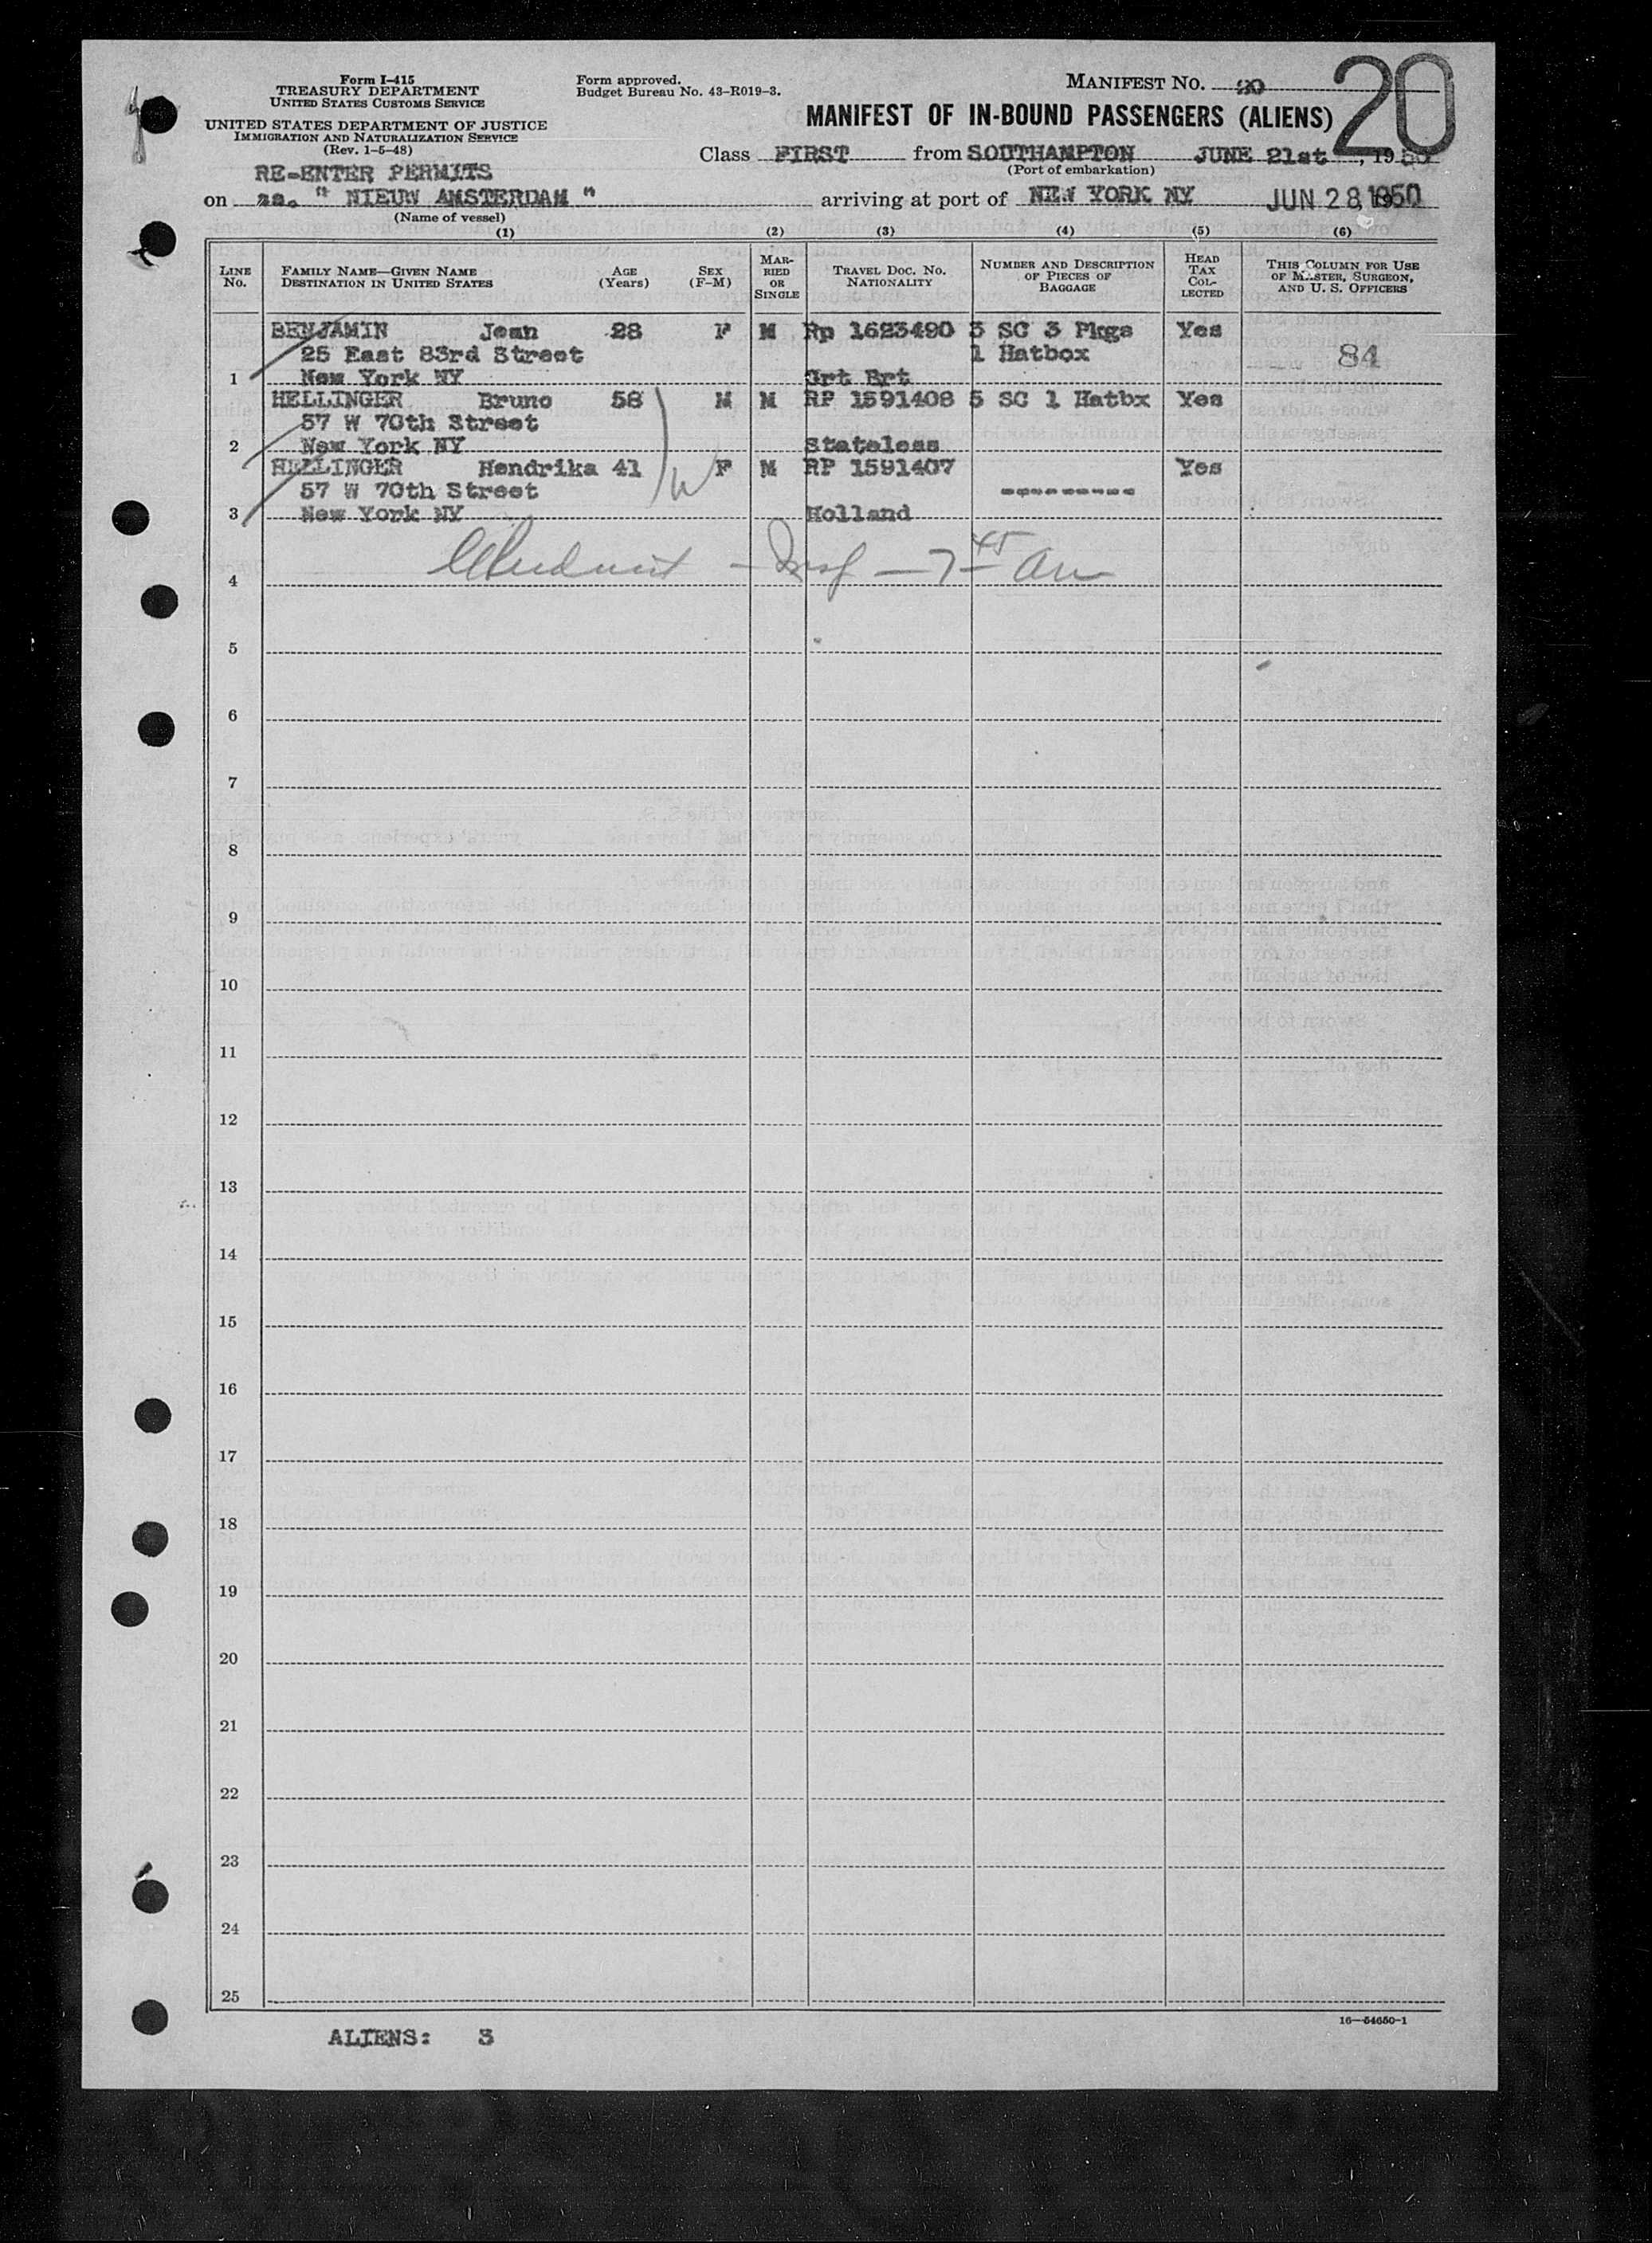 Form I-415
TREASURY DEPARTMENT
UNITED STATES CUSTOMS SERVICE
UNITED STATES DEPARTMENT OF JUSTICE
IMMIGRATION AND NATURALIZATION SERVICE
(Rev. 1-5-48)
Form approved.
Budget Bureau No. 43-R019-3.
MANIFEST NO. 20
20
MANIFEST OF IN-BOUND PASSENGERS (ALIENS)
Class FIRST from SOUTHAMPTON JUNE 21st, 1950
(Port of embarkation)
RE-ENTER PERMITS
on ss. " NIEUW AMSTERDAM " arriving at port of NEW YORK NY JUN 28 1950
(Name of vessel)
(1) (2) (3) (4) (5) (6)
LINE No. FAMILY NAME—GIVEN NAME DESTINATION IN UNITED STATES AGE (Years) SEX (F-M) MARRIED OR SINGLE TRAVEL DOC. NO. NATIONALITY NUMBER AND DESCRIPTION OF PIECES OF BAGGAGE HEAD TAX COLLECTED THIS COLUMN FOR USE OF MASTER, SURGEON, AND U. S. OFFICERS
BENJAMIN Jean 28 F M Rp 1623490 3 SC 3 Pkgs Yes
25 East 83rd Street 1 Hatbox 84
1 New York NY Grt Brt
HELLINGER Bruno 58 M M RP 1591408 5 SC 1 Hatbx Yes
57 W 70th Street
2 New York NY Stateless
HELLINGER Hendrika 41 W F M RP 1591407 Yes
57 W 70th Street ---------
3 New York NY Holland
4 - Insp - 7 45 Am
5
6
7
8
9
10
11
12
13
14
15
16
17
18
19
20
21
22
23
24
25
16—54650-1
ALIENS: 3